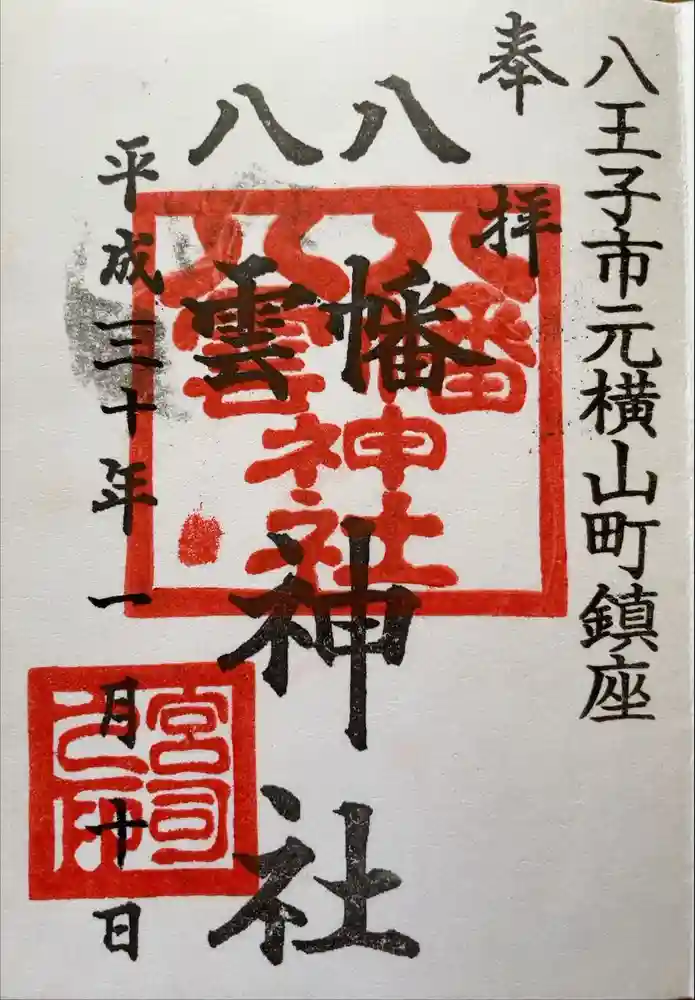 八王子市元横山町鎮座
奉拝
八幡
八雲
神社
平成三十年一月十日
八幡
八雲
神社
宮司
之印